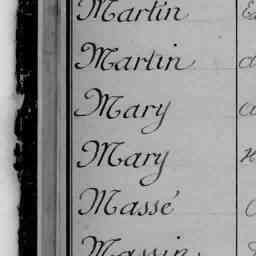 Martin
Martin
Mary
Mary
Massé
Massin